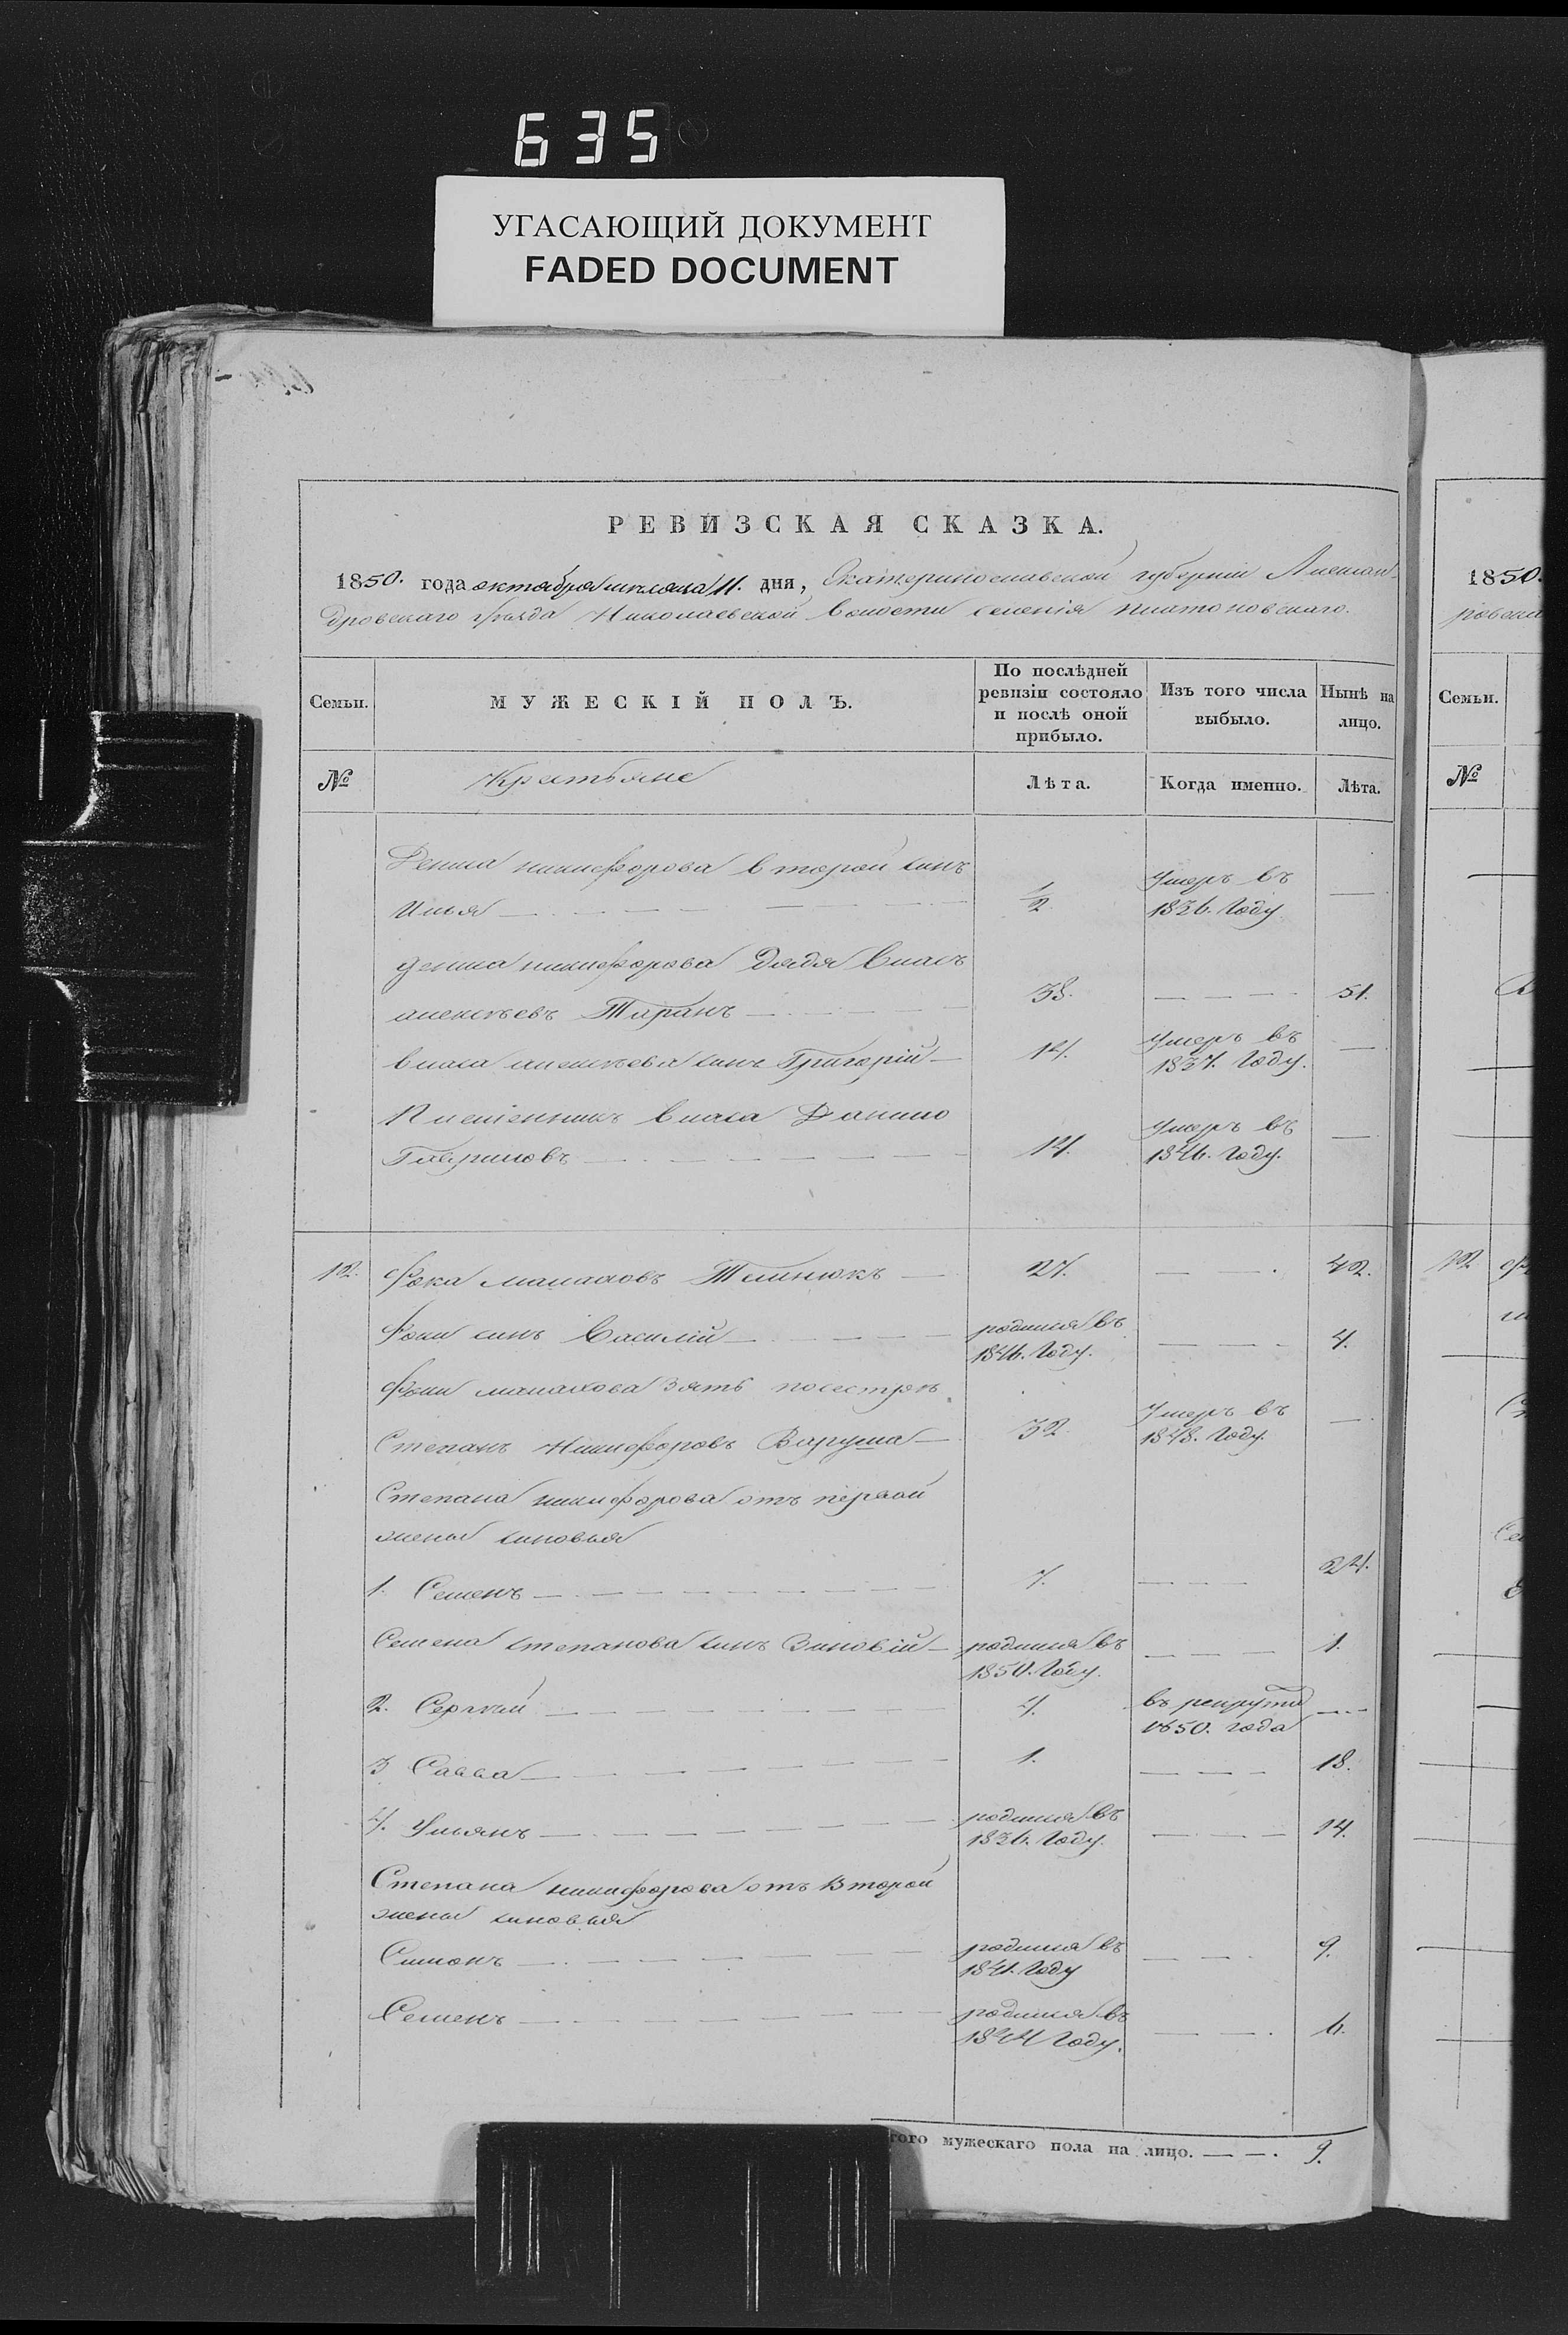 635
УГАСАЮЩИЙ ДОКУМЕНТ
FADED DOCUMENT
РЕВИЗСКАЯ СКАЗКА.
1850. года октября месяца 11. дня, Екатеринославской губернии Алексан-
дровскаго уезда Николаевской волости селенія Платоновскаго.
Семьи.
МУЖЕСКІЙ ПОЛЪ.
По послѣдней ревизіи состояло и послѣ оной прибыло.
Изъ того числа выбыло.
Нынѣ на лицо.
№
Крестьяне
Лѣта.
Когда именно.
Лѣта.
Демида никифорова второй сынъ
Илья — 1/2 Умеръ въ 1836. Году —
никифорова дядя Власъ
алексѣевъ Таранъ — 38. — 51.
Власа алексѣева сынъ Григорій — 14. Умеръ въ 1837. Году. —
Племянникъ Власа Данило
Гавриловъ — 14. Умеръ въ 1846. Году. —
12. Фока малаховъ — 27. — 42.
Фоки сынъ Василій — родился въ 1846. Году. — 4.
Фоки малахова зять по сестрѣ
Степанъ Никифоровъ Варуша — 32. Умеръ въ 1848. Году. —
Степана никифорова отъ первой
жены сыновья
1. Семенъ — 7. — 24.
Семена степанова сынъ Зиновій — родился въ 1850. Году. — 1.
2. Сергѣй — 4. въ рекруты 1850. года —
3 Савва — 1. — 18.
4. Ульянъ — родился въ 1836. Году. — 14.
Степана никифорова отъ второй
жены сыновья
Симонъ — родился въ 1841. Году — 9.
Семенъ — родился въ 1844 Году. — 6.
того мужескаго пола на лицо. — 9.
1850.
Семьи.
№
12